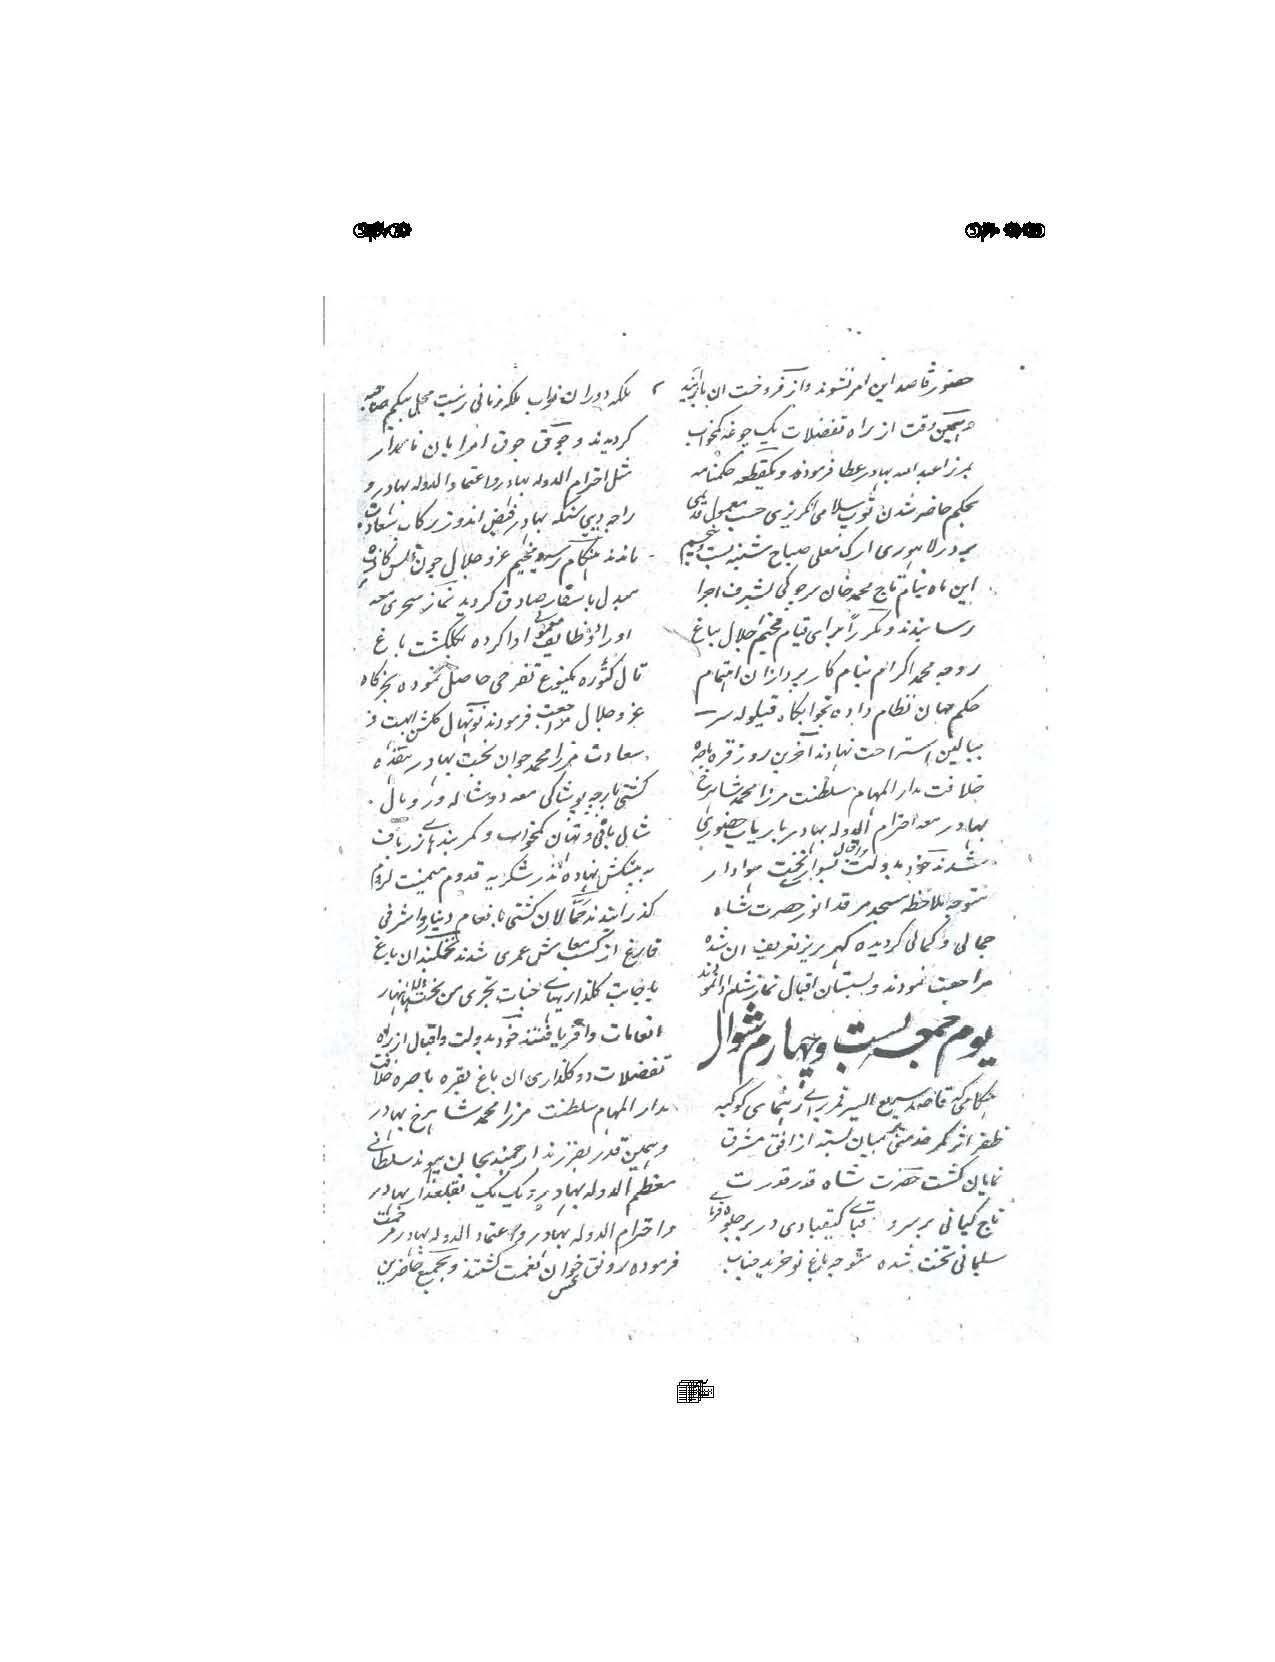 حضور قاصد این امر نشوند و از فروخت ان باز آیند
و همین وقت از راه تفضلات یک چوغه کمخواب
بمرزا عبد الله بهادر عطا فرمودند و یکقطعه حکمنامه
بحکم حاضر شدن توپ سلامی انگریزی حسب معمول قدیمی
بر در لاهوری ارک معلی صباح شنبه بست و پنجم
این ماه بنام تاج محمد خان سر چوکی بشرف اجرا
رسانیدند و مکرراً برای قیام مخیم اجلال بباغ
روحه محمد اکرام بنام کار پردازان اهتمام
حکم جهان نظام داده بخوابگاه قیلوله سر
ببالین استراحت نهادند آخرین روز قره باصره
خلافت مدار المهام سلطنت مرزا محمد شاهرخ
بهادر معه احترام الدوله بهادر باریاب حضوری
شدند خود بدولت و اقبال بسواری تخت هوادار
متوجه ملاحظه مسجد مرقد انور حضرت شاه
جمالی و کمالی گردیده گهر ریز تعریف ان شده
مراجعت نمودند و بستان اقبال نماز شام ادا نمودند
یوم جمعه بست و چهارم شوال
هنگامی که قاصد سریع السیر قمر برای رهنمای کوکبه
ظفر اثر کمر خدمت بمیان بسته از افق مشرق
نمایان گشت حضرت شاه قدر قدرت
تاج کیانی بر سر و قبای کیقبادی در بر جلوه فرمای
سلیمانی تخت شده متوجه باغ نو خرید جناب
ملکه دوران نواب ملکه زمانی زینت محل بیگم صاحبه
گردیدند و جوق جوق امرایان نامدار
مثل احترام الدوله بهادر و اعتماد الدوله بهادر و
راجه دیبی سنگه بهادر فیض اندوز رکاب سعادت
ماندند هنگام رسید مخیم عز و جلال چون
مبدل باسفار صادق گردید نماز سحری معه
اوراد وظایف معمولی ادا کرده بگلگشت باغ
تال کتوره یکنوع تفرحی حاصل نموده بخرگاه
عز و جلال مراجعت فرمودند نونهال گلشن ابهت و
سعادت مرزا محمد جوان بخت بهادر هفده
کشتی پارچه پوشاکی معه دوشاله و رومال
شال بافی و تهان کمخواب و کمر بندهای زربافت
به پیشکش نهاده نذر شکریه قدوم میمنت لزوم
گذرانیدند حمالان کشتی بانعام دینار و اشرفی
فارغ از کسب معاش عمری شدند نخلبندان باغ
انعامات وافر یافتند خود بدولت و اقبال از راه
تفضلات دو گلذاری ان باغ بقره باصره خلافت
مدار المهام سلطنت مرزا محمد شاهرخ بهادر
و همین قدر بفرزند ارجمند بجان پیوند سلطانی
معظم الدوله بهادر و یک یک بقلعدار بهادر
و احترام الدوله بهادر و اعتماد الدوله بهادر مرحمت
فرموده رونق بخش خوان نعمت گشتند و بجمیع حاضرین